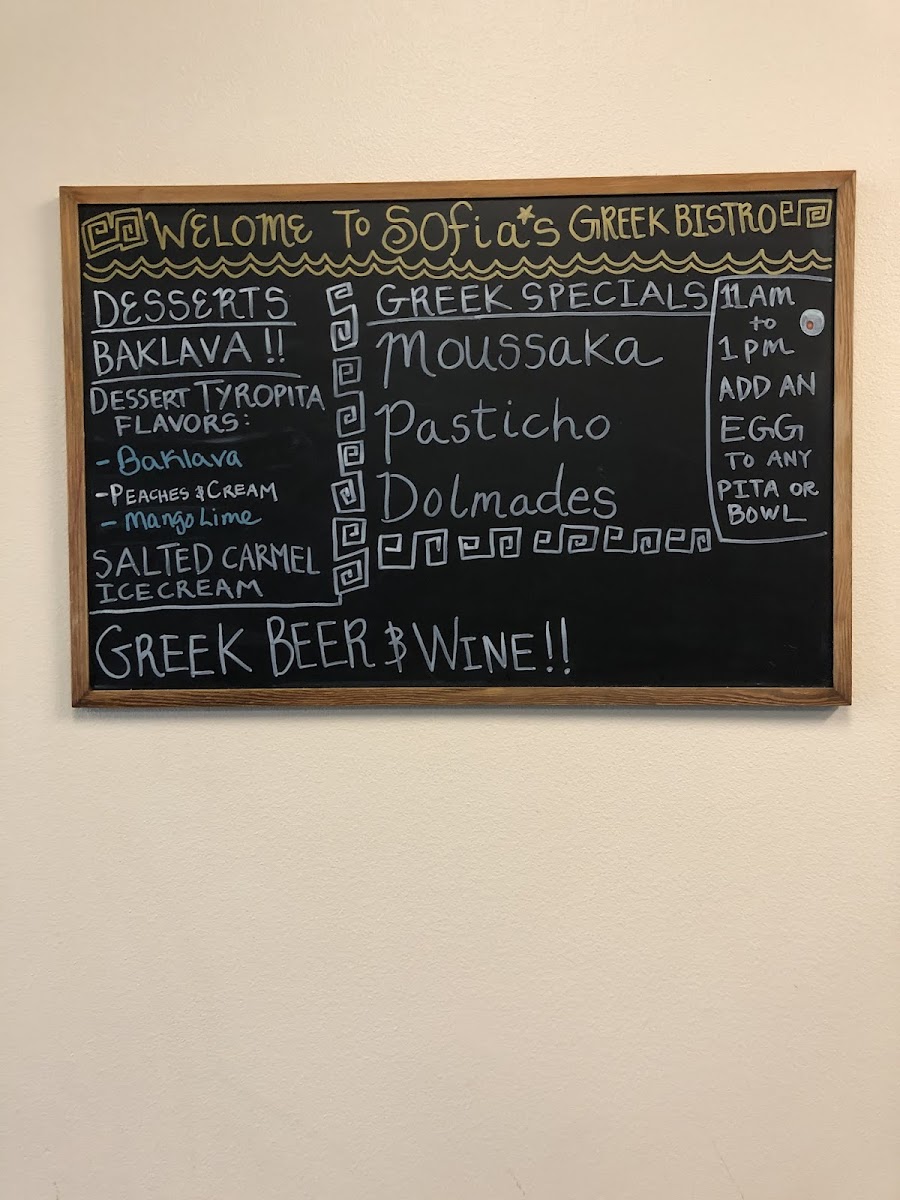 WELOME TO SOfia's GREEK BISTRO
DESSERTS
BAKLAVA !!
DESSERT TYROPITA
FLAVORS:
- Baklava
- PEACHES & CREAM
- Mango Lime
SALTED CARMEL
ICECREAM
GREEK SPECIALS
Moussaka
Pasticho
Dolmades
11AM
to
1PM
ADD AN
EGG
TO ANY
PITA OR
BOWL
GREEK BEER & WINE!!